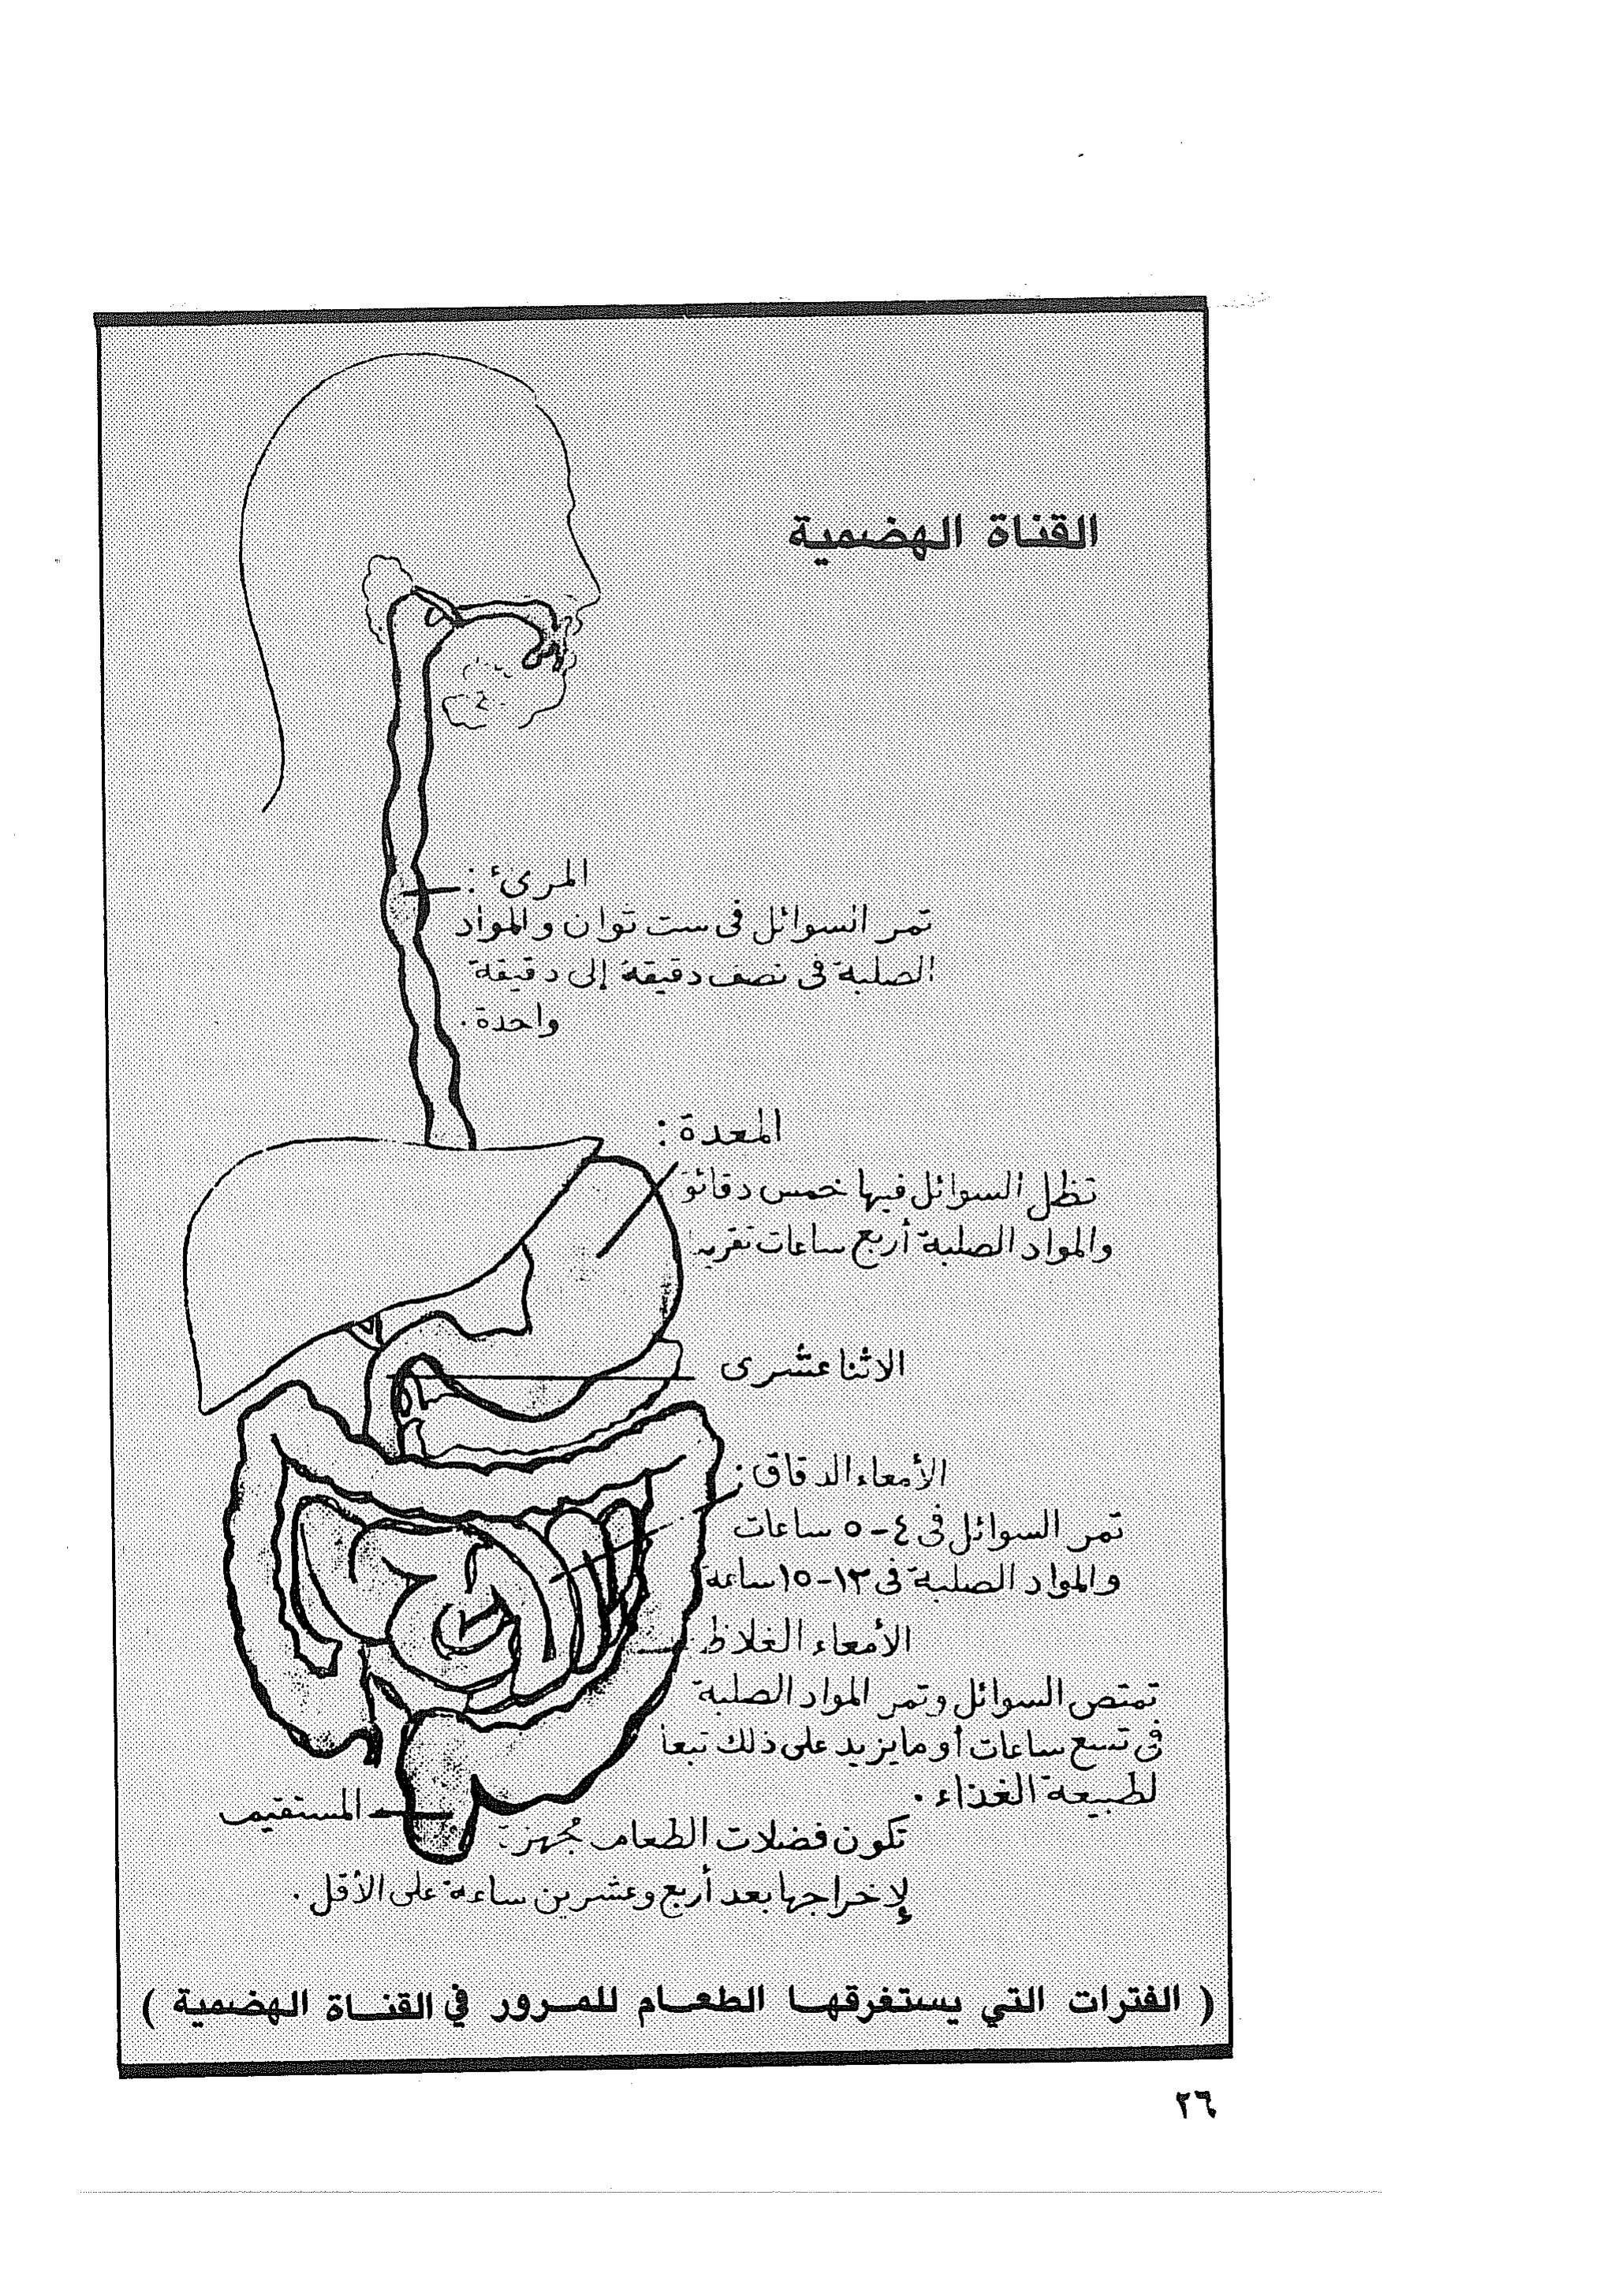 القناة الهضمية
المرئ :
تمر السوائل فى ست ثوان والمواد
الصلبة فى نصف دقيقة إلى دقيقة
واحدة .
المعدة :
تظل السوائل فيها خمس دقائق
والمواد الصلبة أربع ساعات تقريبا
الاثنا عشرى
الأمعاء الدقاق :
تمر السوائل فى ٤-٥ ساعات
والمواد الصلبة فى ١٣-١٥ ساعة
الأمعاء الغلاظ
تمتص السوائل وتمر المواد الصلبة
فى تسع ساعات أو مايزيد على ذلك تبعا
لطبيعة الغذاء .
المستقيم
تكون فضلات الطعام مجهزة
لإخراجها بعد أربع وعشرين ساعة على الأقل .
( الفترات التي يستغرقها الطعام للمرور في القناة الهضمية )
٢٦